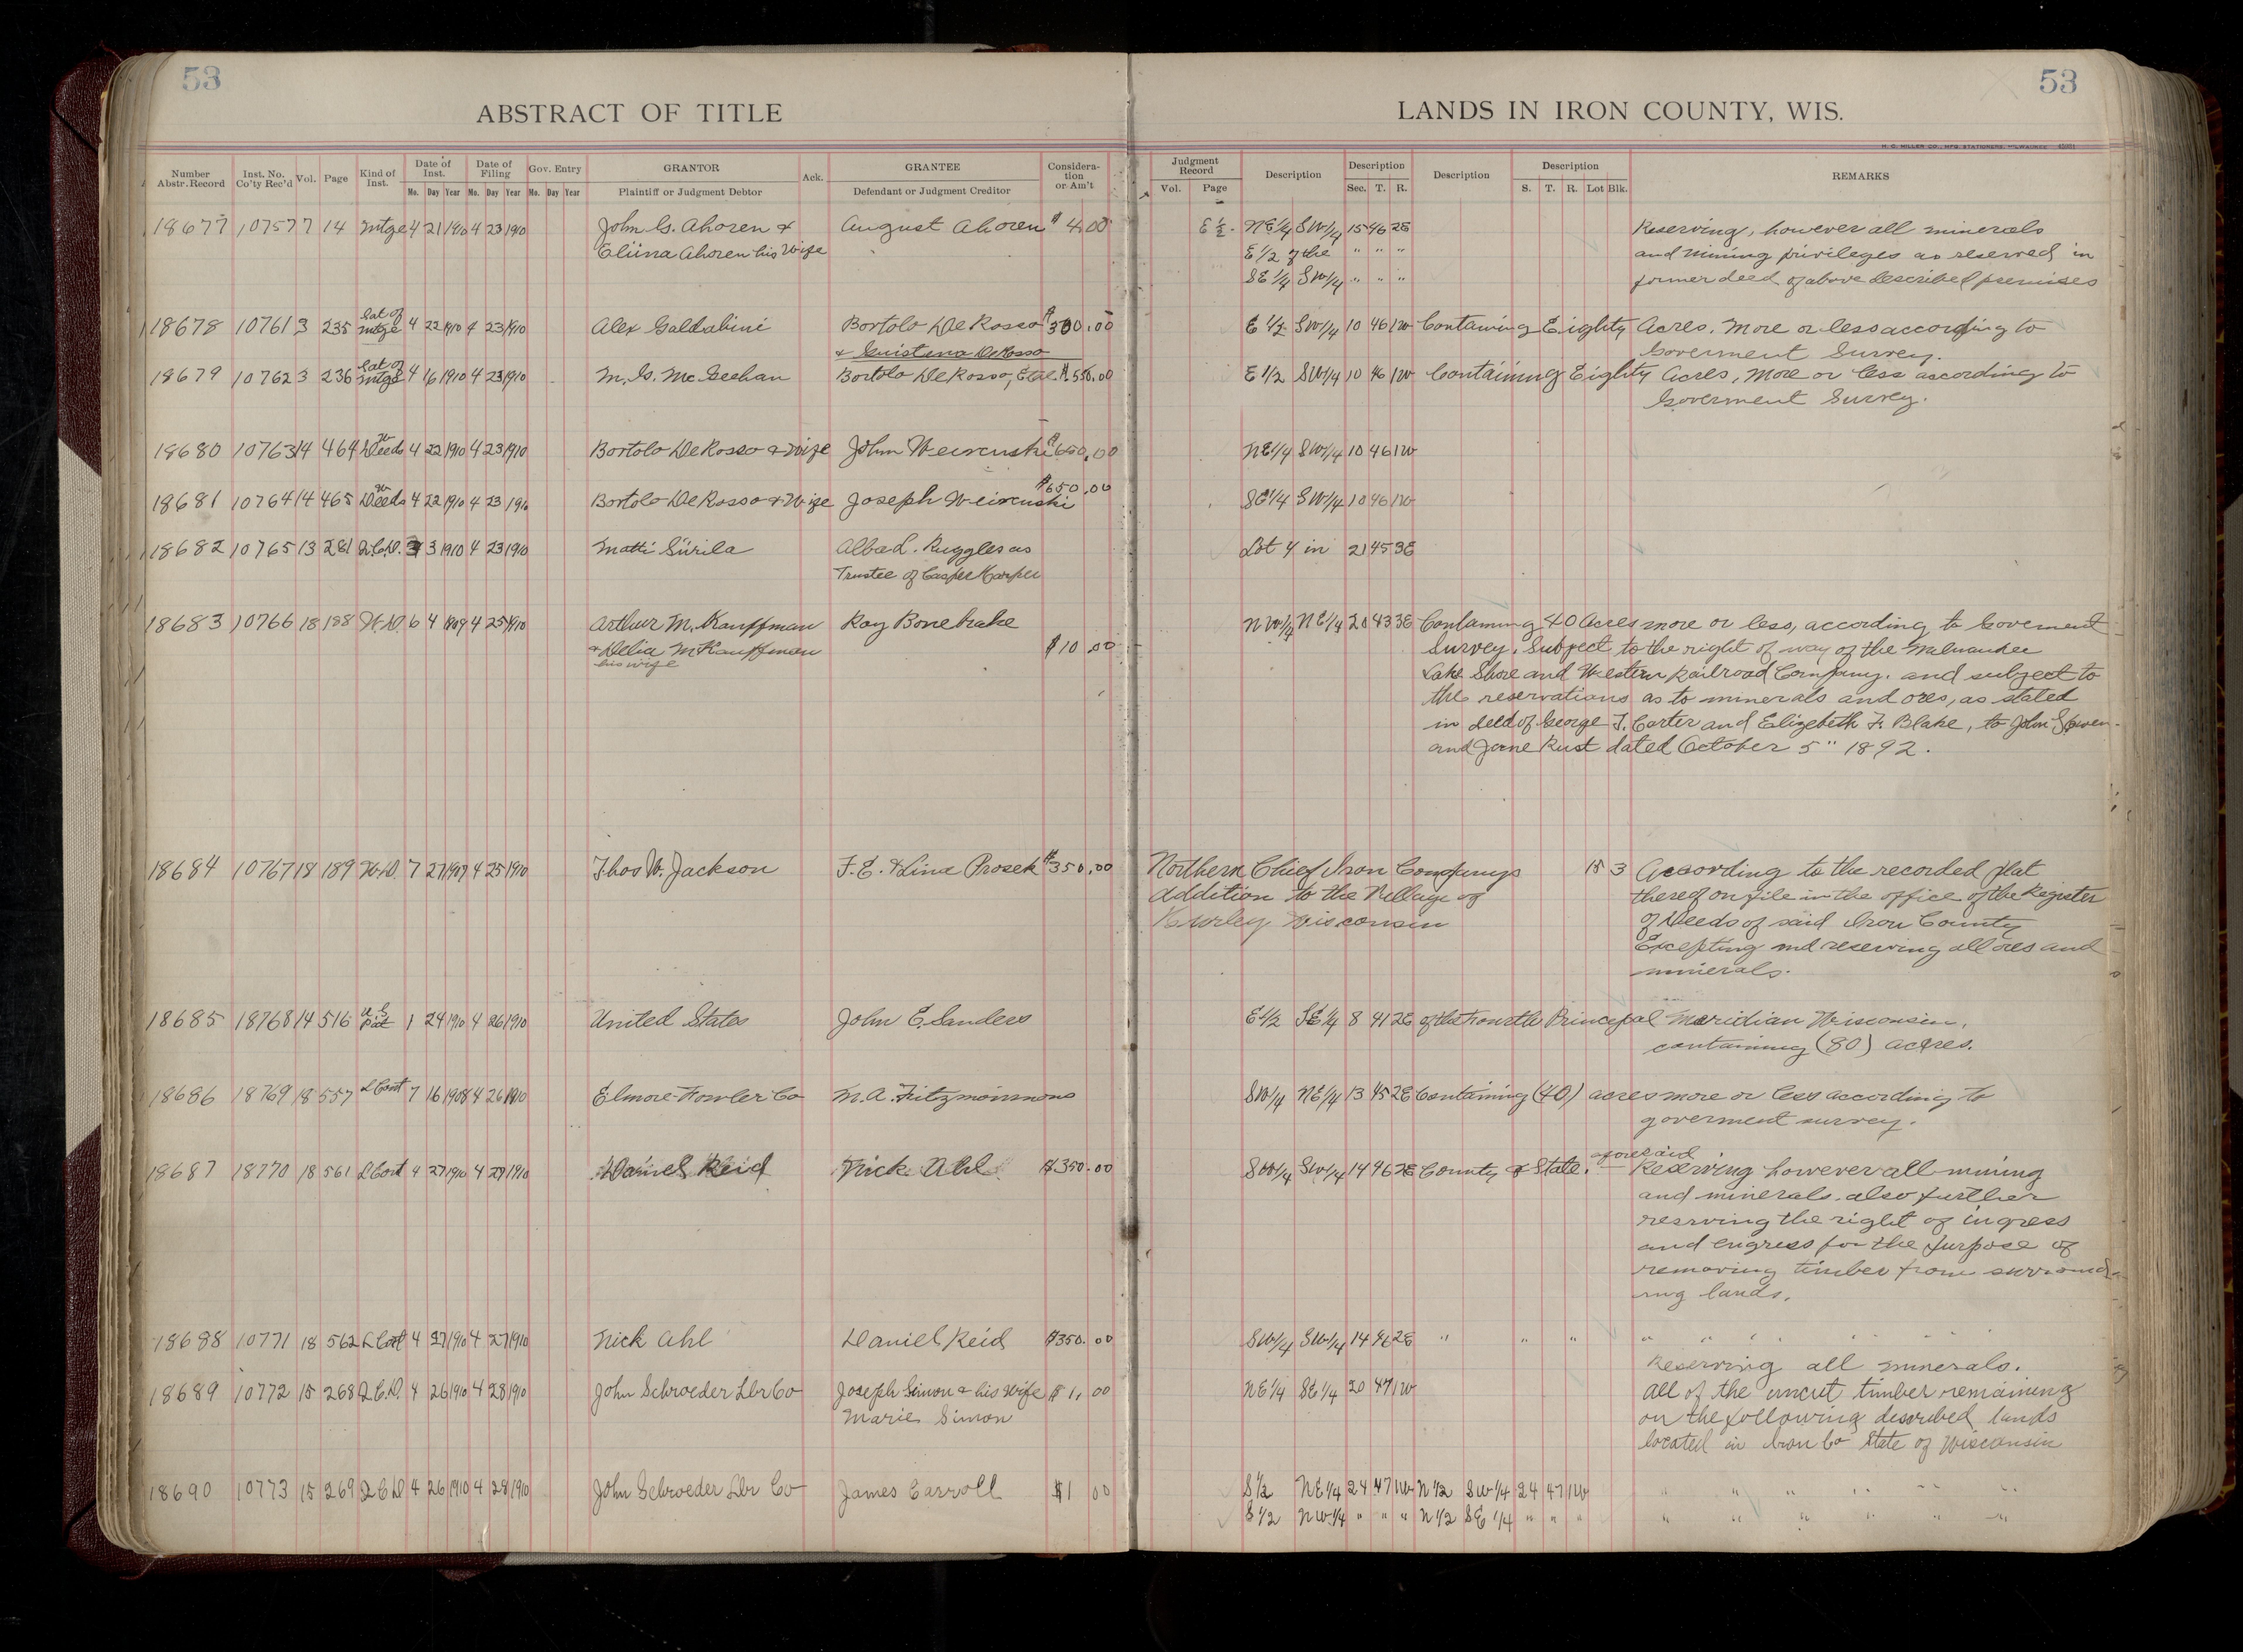 53
ABSTRACT OF TITLE
Number Abstr. Record Inst. No. Co'ty Rec'd Vol. Page Kind of Inst. Date of Inst. Mo. Day Year Date of Filing Mo. Day Year Gov. Entry Mo. Day Year GRANTOR Plaintiff or Judgment Debtor Ack. GRANTEE Defendant or Judgment Creditor Considera-tion or Am't
18677 10757 7 14 Mtge 4 21 1910 4 23 1910 John G. Ahoren & August Ahoren $ 4.00
Eliina Ahoren his Wife
18678 10761 3 235 Sat of Mtge 4 22 1910 4 23 1910 Alex Galdabini Bortolo DeRosso $300.00
& Guistena DeRosso
18679 10762 3 236 Sat of Mtge 4 16 1910 4 23 1910 M. G. McGeehan Bortolo DeRosso, Etal $550.00
18680 10763 14 464 W Deeds 4 22 1910 4 23 1910 Bortolo DeRosso & Wife John $650.00
18681 10764 14 465 W Deeds 4 22 1910 4 23 1910 Bortolo DeRosso & Wife Joseph $650.00
18682 10765 13 281 Q.C.D. 3 1910 4 23 1910 Matti Siirila Alba L. Ruggles as
Trustee of Casper
18683 10766 18 188 W.D. 6 4 1909 4 25 1910 Arthur M. Kauffman Ray Bonebrake
& Delia M Kauffman $10.00
his wife
18684 10767 18 189 W.D. 7 27 1907 4 25 1910 Thos W. Jackson F. E. & Lina Prosek $350.00
18685 18768 14 516 U.S Pat 1 24 1910 4 26 1910 United States John E. Sanders
18686 18769 18 557 L Cont 7 16 1908 4 26 1910 Elmore-Fowler Co M. A. Fitzmoinmons
18687 18770 18 561 L Cont 4 27 1910 4 27 1910 Daniel Reid Nick Ahl $350.00
18688 10771 18 562 L Cont 4 27 1910 4 27 1910 Nick Ahl Daniel Reid $350.00
18689 10772 15 268 Q.C.D. 4 26 1910 4 28 1910 John Schroeder Lbr Co Joseph Simon & his Wife $1,00
Marie Simon
18690 10773 15 269 Q C D 4 26 1910 4 28 1910 John Schroeder Lbr Co James Carroll $1 00
53
LANDS IN IRON COUNTY, WIS.
H. C. MILLER CO., MFG. STATIONERS, MILWAUKEE
Judgment Record Vol. Page Description Description Sec. T. R. Description Description S. T. R. Lot Blk. REMARKS
E ½. NE1/4 SW1/4 15 46 2E Reserving, however all minerals
E1/2 of the " " " and mining privileges as reserved in
SE1/4 SW1/4 " " " former deed of above described premises
E 1/2 SW1/4 10 46 1W Containing Eighty Acres. More or less according to
Goverment Survey.
E 1/2 SW1/4 10 46 1W Containing Eighty Acres, More or less according to
Goverment Survey.
NE1/4 SW1/4 10 46 1W
SE1/4 SW1/4 10 46 1W
Lot 4 in 21 45 3E
NW1/4 NE1/4 20 43 3E Containing 40 Acres more or less, according to Goverment
Survey. Subject to the right of way of the Milwaukee
Lake Shore and Western Railroad Company. and subject to
the reservations as to minerals and ores, as stated
in deed of George T. Carter and Elizebeth F. Blake, to John S. Owen
and Jane Rust dated October 5" 1892.
Northern Chief Iron Companys 15 3 According to the recorded plat
Addition to the Village of thereof on file in the office of the Register
Hurley Wisconsin of Deeds of said Iron County
Excepting and reserving all ores and
minerals.
E1/2 SE1/4 8 41 2E of the Fourth Principal Meridian Wisconsin,
containing (80) acres.
SW1/4 NE1/4 13 45 2E Containing (40) acres more or less according to
goverment survey.
SW1/4 SW1/4 14 46 2E County & State. aforesaid Reserving however all mining
and minerals. also further
resrving the right of ingress
and engress for the purpose of
removing timber from surround-
ing lands.
SW1/4 SW1/4 14 46 2E " " " " " " " " " "
Reserving all minerals.
NE1/4 SE1/4 20 47 1W all of the uncut timber remaining
on the following described lands
located in Iron Co State of Wisconsin
S1/2 NE1/4 24 47 1W N1/2 SW1/4 24 47 1W " " " " " "
S1/2 NW1/4 " " " N1/2 SE1/4 " " " " " " " " "